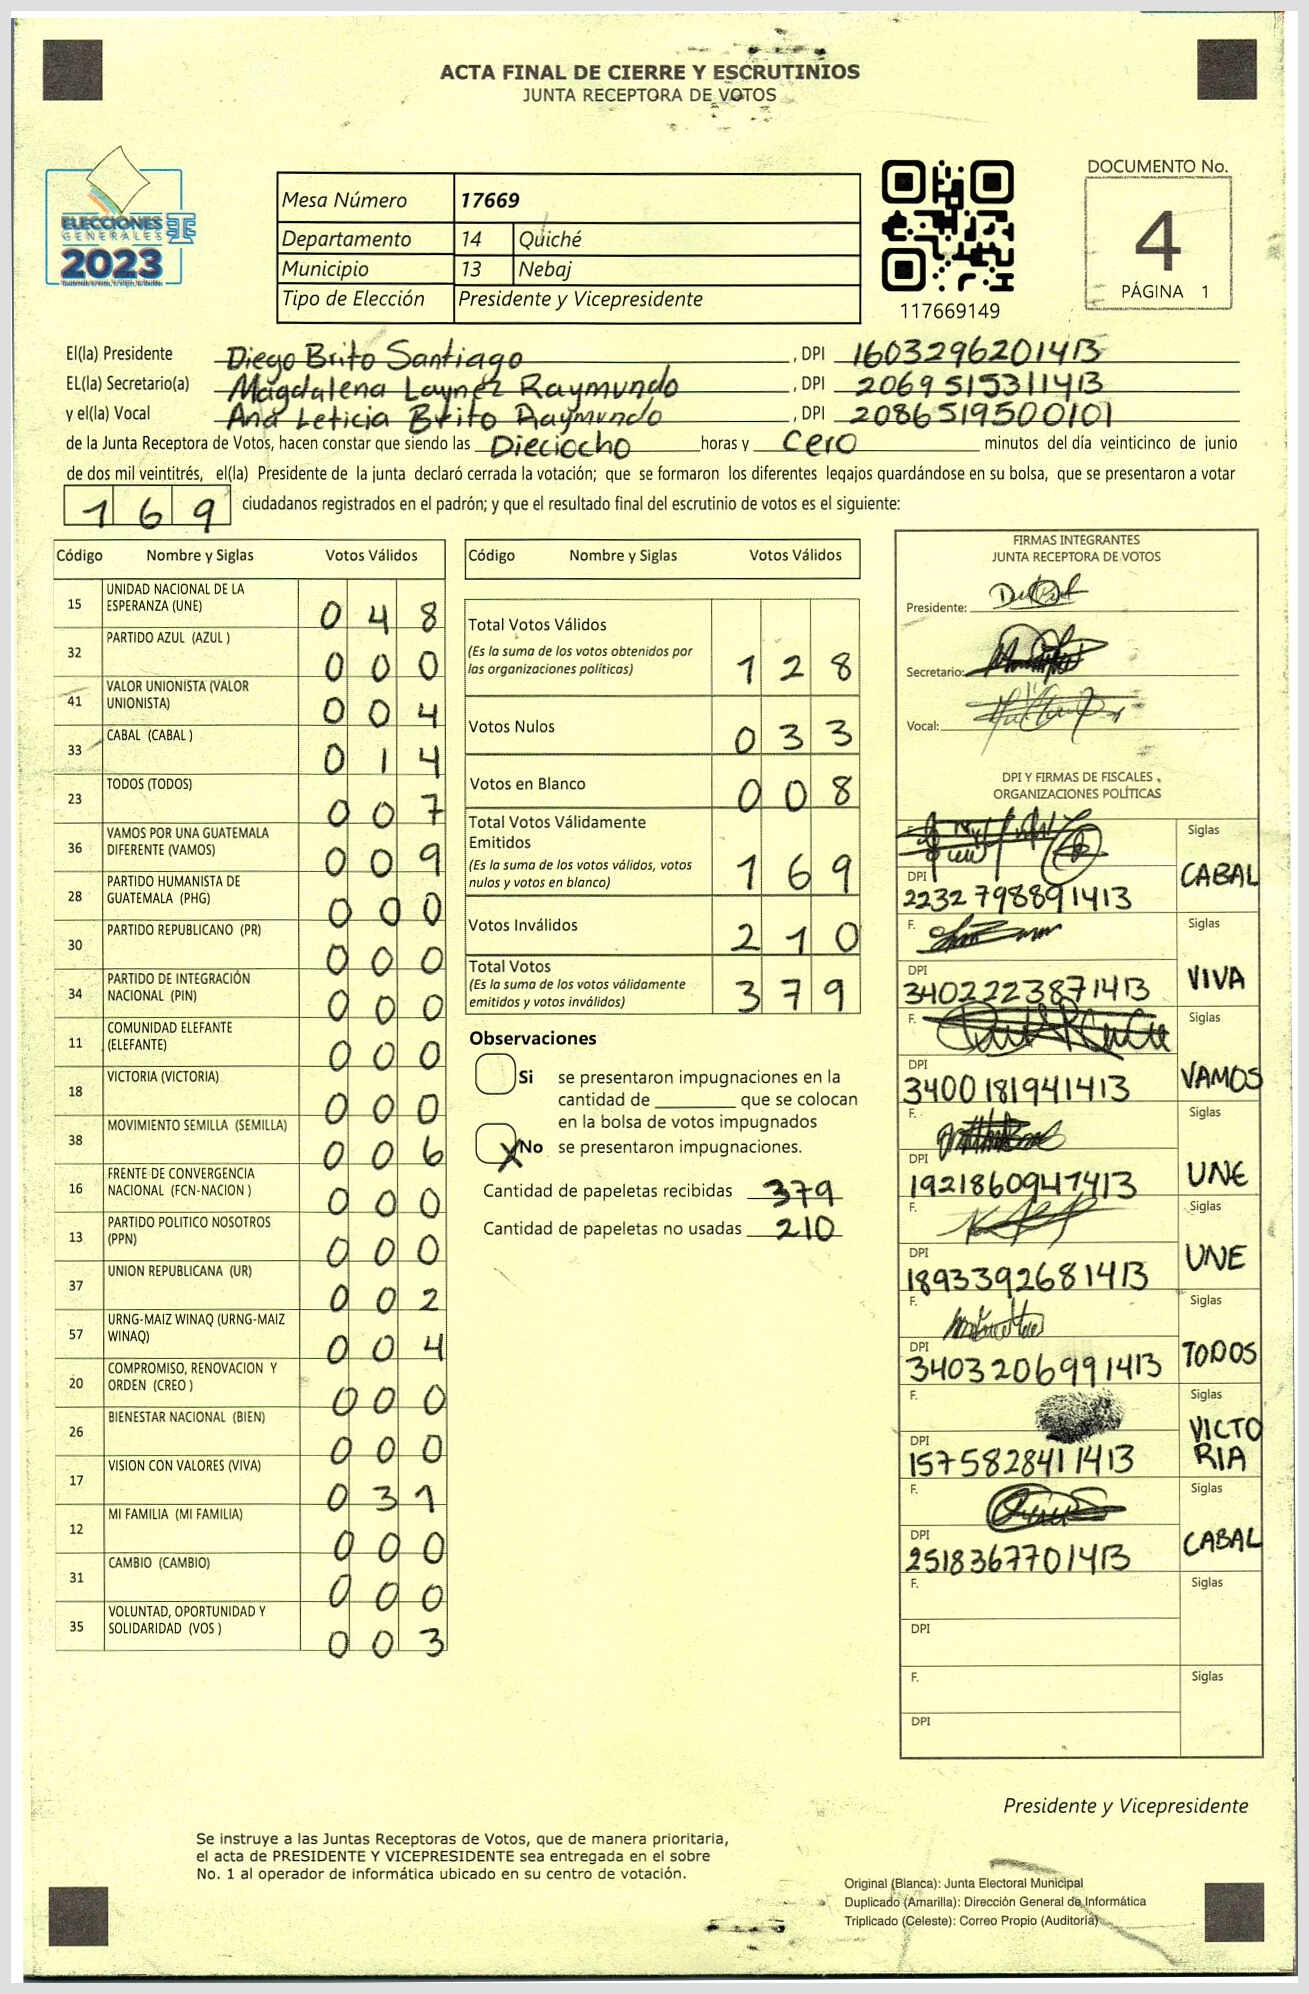 ACTA FINAL DE CIERRE Y ESCRUTINIOS
JUNTA RECEPTORA DE VOTOS
ELECCIONES
GENERALES
2023
Mesa Número 17669
Departamento 14 Quiché
Municipio 13 Nebaj
Tipo de Elección Presidente y Vicepresidente
117669149
DOCUMENTO No.
4
PÁGINA 1
El(la) Presidente Diego Brito Santiago, DPI 1603296201413
EL(la) Secretario(a) Magdalena Laynez Raymundo, DPI 2069515311413
y el(la) Vocal Ana Leticia Brito Raymundo, DPI 2086519500101
de la Junta Receptora de Votos, hacen constar que siendo las Dieciocho horas y Cero minutos del día veinticinco de junio
de dos mil veintitrés, el(la) Presidente de la junta declaró cerrada la votación; que se formaron los diferentes legajos quardándose en su bolsa, que se presentaron a votar
169 ciudadanos registrados en el padrón; y que el resultado final del escrutinio de votos es el siguiente:
Código Nombre y Siglas Votos Válidos
15 UNIDAD NACIONAL DE LA ESPERANZA (UNE) 048
32 PARTIDO AZUL (AZUL ) 000
41 VALOR UNIONISTA (VALOR UNIONISTA) 004
33 CABAL (CABAL ) 014
23 TODOS (TODOS) 007
36 VAMOS POR UNA GUATEMALA DIFERENTE (VAMOS) 009
28 PARTIDO HUMANISTA DE GUATEMALA (PHG) 000
30 PARTIDO REPUBLICANO (PR) 000
34 PARTIDO DE INTEGRACIÓN NACIONAL (PIN) 000
11 COMUNIDAD ELEFANTE (ELEFANTE) 000
18 VICTORIA (VICTORIA) 000
38 MOVIMIENTO SEMILLA (SEMILLA) 006
16 FRENTE DE CONVERGENCIA NACIONAL (FCN-NACION ) 000
13 PARTIDO POLITICO NOSOTROS (PPN) 000
37 UNION REPUBLICANA (UR) 002
57 URNG-MAIZ WINAQ (URNG-MAIZ WINAQ) 004
20 COMPROMISO, RENOVACION Y ORDEN (CREO ) 000
26 BIENESTAR NACIONAL (BIEN) 000
17 VISION CON VALORES (VIVA) 031
12 MI FAMILIA (MI FAMILIA) 000
31 CAMBIO (CAMBIO) 000
35 VOLUNTAD, OPORTUNIDAD Y SOLIDARIDAD (VOS ) 003
Código Nombre y Siglas Votos Válidos
Total Votos Válidos 128
(Es la suma de los votos obtenidos por
las organizaciones políticas)
Votos Nulos 033
Votos en Blanco 008
Total Votos Válidamente
Emitidos 169
(Es la suma de los votos válidos, votos
nulos y votos en blanco)
Votos Inválidos 210
Total Votos 379
(Es la suma de los votos válidamente
emitidos y votos inválidos)
Observaciones
Si se presentaron impugnaciones en la
cantidad de ________ que se colocan
en la bolsa de votos impugnados
X No se presentaron impugnaciones.
Cantidad de papeletas recibidas 379
Cantidad de papeletas no usadas 210
FIRMAS INTEGRANTES
JUNTA RECEPTORA DE VOTOS
Presidente:
Secretario:
Vocal:
DPI Y FIRMAS DE FISCALES
ORGANIZACIONES POLÍTICAS
F. Siglas CABAL
DPI 2232798891413
F. Siglas VIVA
DPI 3402223871413
F. Siglas VAMOS
DPI 3400181941413
F. Siglas UNE
DPI 1921860947413
F. Siglas UNE
DPI 1893392681413
F. Siglas TODOS
DPI 3403206991413
F. Siglas VICTORIA
DPI 1575828411413
F. Siglas CABAL
DPI 2518367701413
F. Siglas
DPI
F. Siglas
DPI
Presidente y Vicepresidente
Se instruye a las Juntas Receptoras de Votos, que de manera prioritaria,
el acta de PRESIDENTE Y VICEPRESIDENTE sea entregada en el sobre
No. 1 al operador de informática ubicado en su centro de votación.
Original (Blanca): Junta Electoral Municipal
Duplicado (Amarilla): Dirección General de Informática
Triplicado (Celeste): Correo Propio (Auditoría)